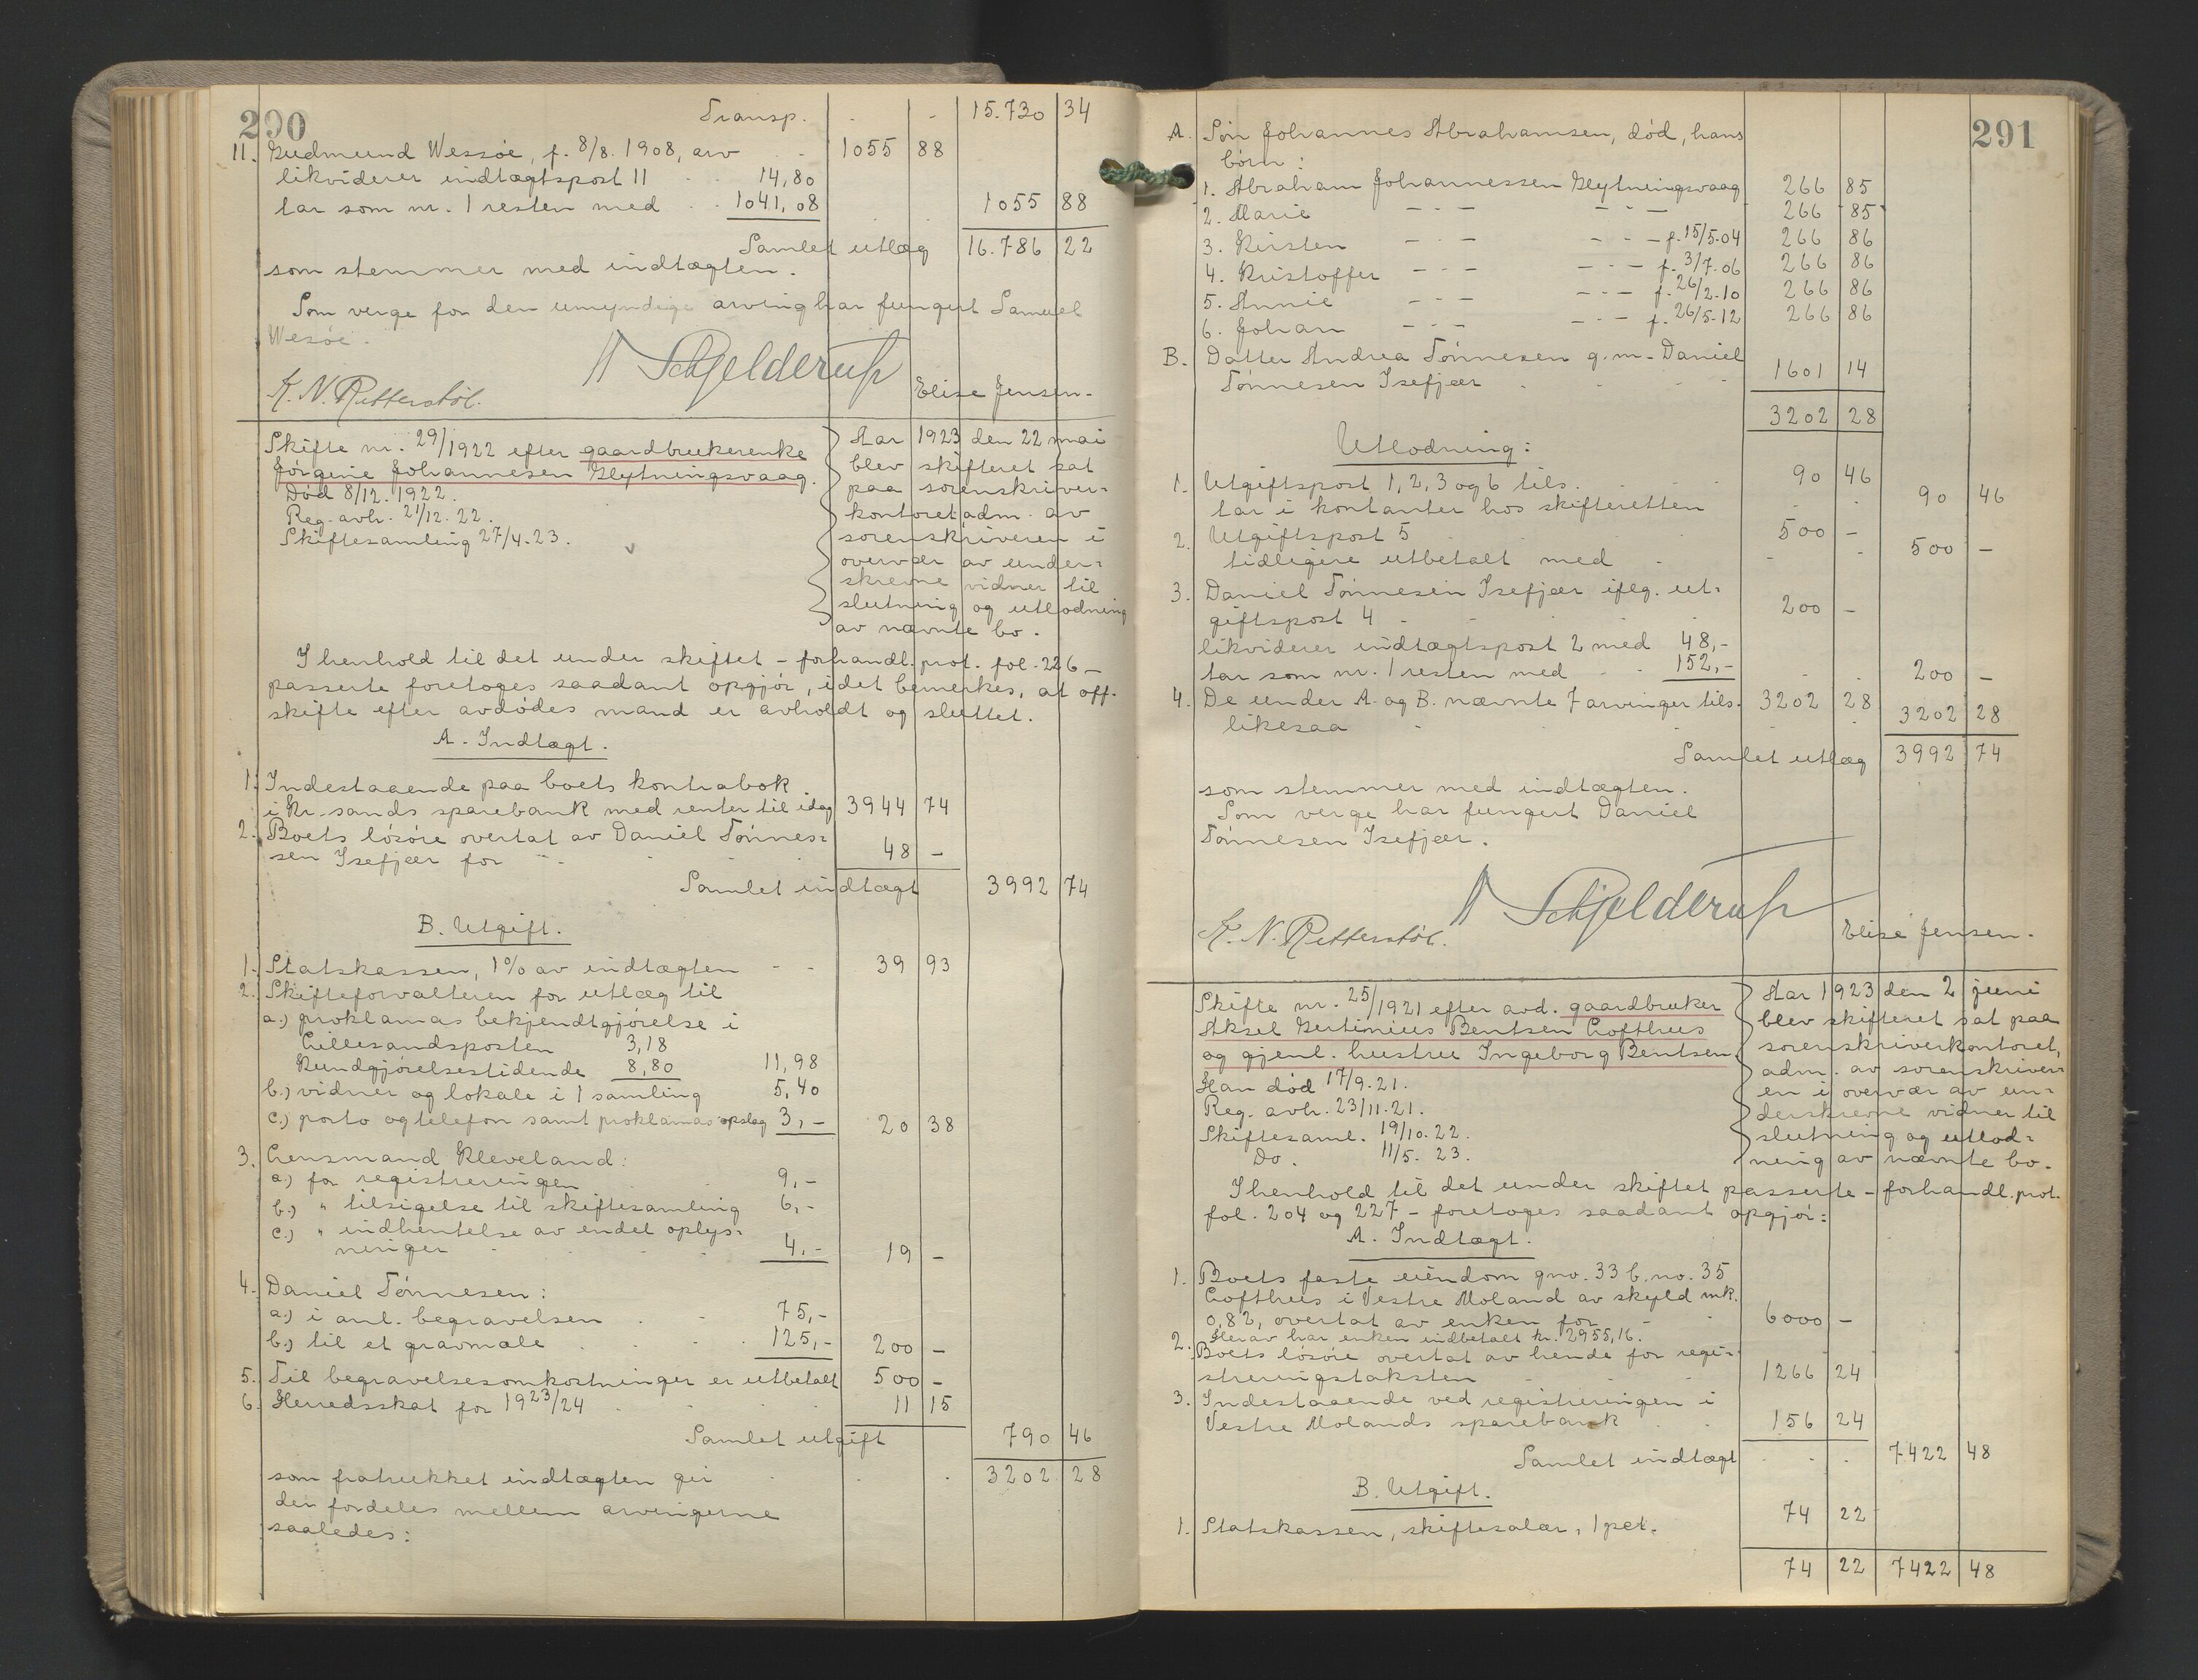 290
Transp. - - 15.730 34
11. Gudmund Wessøe, f. 8/8. 1908, arv - - 1055 88
likviderer indtægtspost 11 - - 14,80
tar som nr. 1 resten med - - 1041,08 - - 1055 88
Samlet utlæg 16.786 22
som stemmer med indtægten.
Som verge for den umyndige arving har fungert Samuel
Wesøe.
Schjelderup
K. N. Retterstøl. Elise Jensen.
Skifte nr. 29/1922 efter gaardbrukerenke
Jørgine Johannesen Glytningsvaag.
Død 8/12. 1922.
Reg. avh. 21/12. 22.
Skiftesamling 27/4. 23.
Aar 1923 den 22 mai
blev skifteret sat
paa sorenskriver-
kontoret adm. av
sorenskriveren i
overvær av under-
skrevne vidner til
slutning og utlodning
av nævnte bo.
I henhold til det under skiftet - forhandl. prot. fol. 226 -
passerte foretoges saadant opgjør, idet bemerkes, at off.
skifte efter avdødes mand er avholdt og sluttet.
A. Indtægt.
1. Indestaaende paa boets kontrabok
i Kr.sands sparebank med renter til idag 3944 74
2. Boets løsøre overtat av Daniel Tønnes-
sen Isefjær for - - 48 -
Samlet indtægt 3992 74
B. Utgift.
1. Statskassen, 1% av indtægten - - 39 93
2. Skifteforvalteren for utlæg til
a.) proklamas bekjendtgjørelse i
Lillesandsposten 3,18
Kundgjørelsestidende 8,80 11,98
b.) vidner og lokale i 1 samling 5,40
c.) porto og telefon samt proklamas opslag 3,- 20 38
3. Lensmand Kleveland:
a.) for registreringen 9,-
b.) " tilsigelse til skiftesamling 6,-
c.) " indhentelse av endel oplys-
ninger - - 4,- 19 -
4. Daniel Tønnesen:
a.) i anl. begravelsen - - 75,-
b.) til et gravmæle - - 125,- 200 -
5. Til begravelsesomkostninger er utbetalt 500 -
6. Herredsskat for 1923/24 - - 11 15
Samlet utgift 790 46
som fratrukket indtægten gir - - 3202 28
der fordeles mellem arvingerne
saaledes:
291
A. Søn Johannes Abrahamsen, død, hans
børn:
1. Abraham Johannessen Glytningsvaag 266 85
2. Marie - - - - - - 266 85
3. Kirsten - - - - - - f. 15/5.04 266 86
4. Kristoffer - - - - - - f. 3/7.06 266 86
5. Annie - - - - - - f. 26/2.10 266 86
6. Johan - - - - - - f. 26/5.12 266 86
B. Datter Andrea Tønnesen g.m. Daniel
Tønnesen Isefjær - - 1601 14
3202 28
Utlodning:
1. Utgiftspost 1, 2, 3 og 6 tils. - - 90 46
tar i kontanter hos skifteretten - - 90 46
2. Utgiftspost 5 - - 500 -
tidligere utbetalt med - - 500 -
3. Daniel Tønnesen Isefjær iflg. ut-
giftspost 4 - - 200 -
likviderer indtægtspost 2 med 48,-
tar som nr. 1 resten med - 152,- - - 200 -
4. De under A. og B. nævnte 7 arvinger tils. 3202 28
likesaa - - 3202 28
Samlet utlæg 3992 74
som stemmer med indtægten.
Som verge har fungert Daniel
Tønnesen Isefjær.
Schjelderup
K. N. Retterstøl. Elise Jensen.
Skifte nr. 25/1921 efter avd. gaardbruker
Aksel Gertinius Bentsen Lofthus
og gjenl. hustru Ingeborg Bentsen.
Han død 17/9. 21.
Reg. avh. 23/11. 21.
Skiftesaml. 19/10. 22.
Do. 11/5. 23.
Aar 1923 den 2 juni
blev skifteret sat paa
sorenskriverkontoret,
adm. av sorenskriver-
en i overvær av un-
derskrevne vidner til
slutning og utlod-
ning av nævnte bo.
I henhold til det under skiftet passerte - forhandl. prot.
fol. 204 og 227 - foretoges saadant opgjør:
A. Indtægt.
1. Boets faste eiendom gno. 33 b.no. 35
Lofthus i Vestre Moland av skyld mk.
0,82, overtat av enken for - - 6000 -
Herav har enken indbetalt kr. 2955,16.
2. Boets løsøre overtat av hende for regi-
streringstaksten - - 1266 24
3. Indestaaende ved registreringen i
Vestre Molands sparebank - - 156 24
Samlet indtægt - - 7422 48
B. Utgift.
1. Statskassen, skiftesalær, 1 pct. 74 22
74 22 7422 48